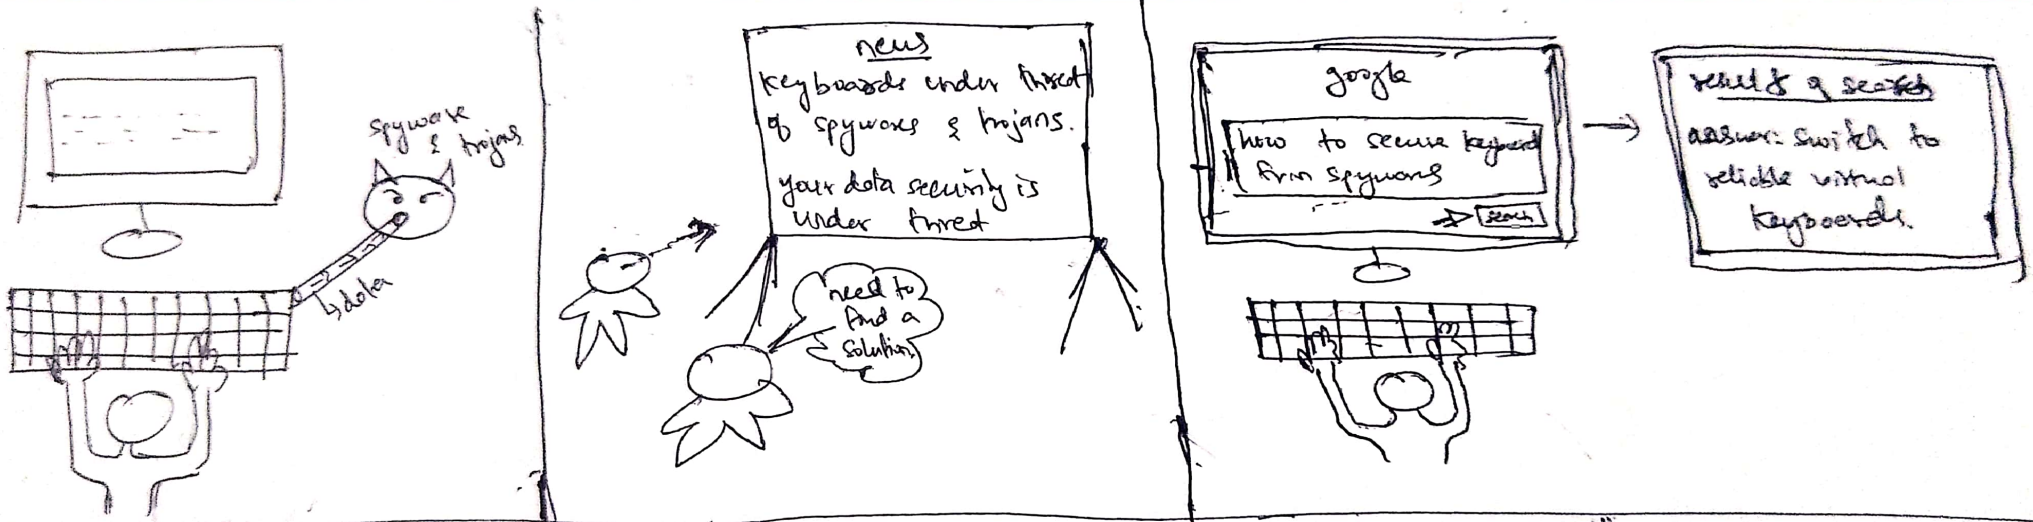 spyware
& trojans
data
news
keyboards under thret
of spywares & trojans.
your data security is
under thret
need to
find a
solution
google
how to secure keyboard
from spywares
search
result of search
answer: switch to
reliable virtual
keyboards.